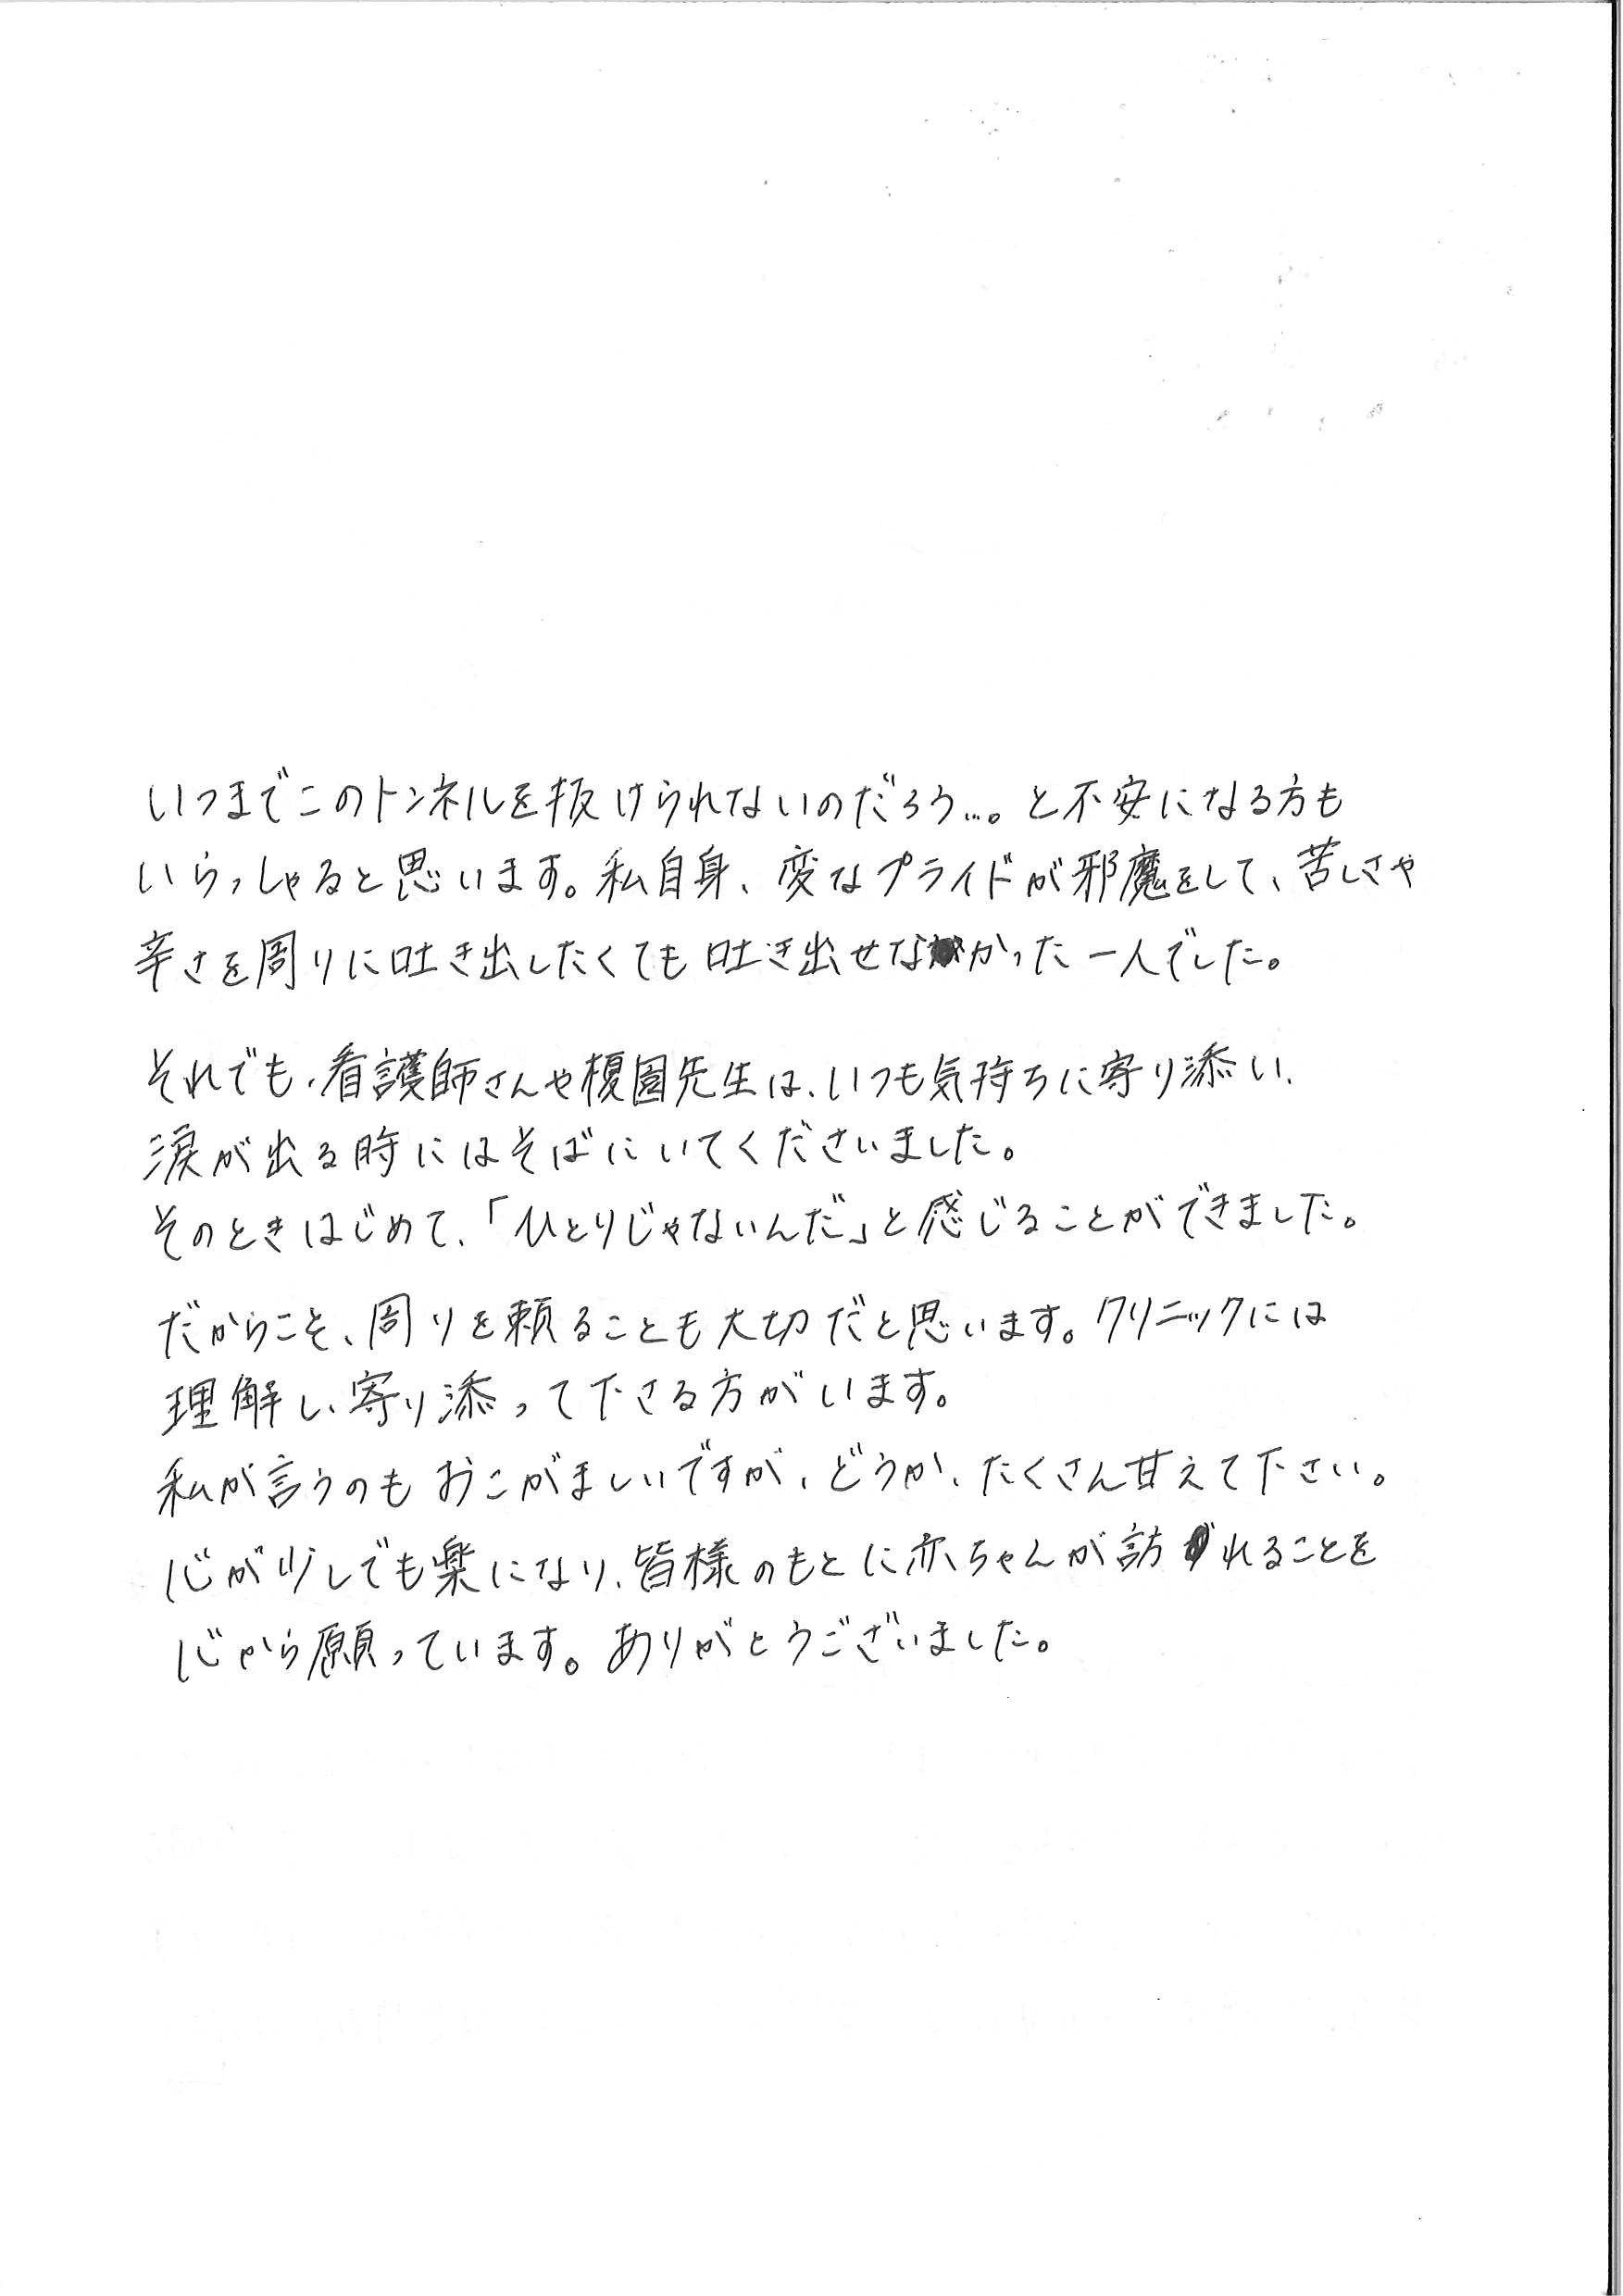 いつまでこのトンネルを抜けられないのだろう…。と不安になる方も
いらっしゃると思います。私自身、変なプライドが邪魔をして、苦しさや
辛さを周りに吐き出したくても吐き出せなかった一人でした。
それでも、看護師さんや榎園先生は、いつも気持ちに寄り添い、
涙が出る時にはそばにいてくださいました。
そのときはじめて、「ひとりじゃないんだ」と感じることができました。
だからこそ、周りを頼ることも大切だと思います。クリニックには
理解し、寄り添って下さる方がいます。
私が言うのもおこがましいですが、どうか、たくさん甘えて下さい。
心が少しでも楽になり、皆様のもとに赤ちゃんが訪れることを
心から願っています。ありがとうございました。